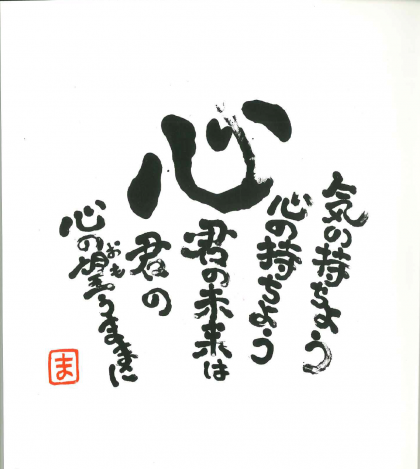 心
気の持ちよう
心の持ちよう
君の未来は
君の
心の望うままに
おも
ま